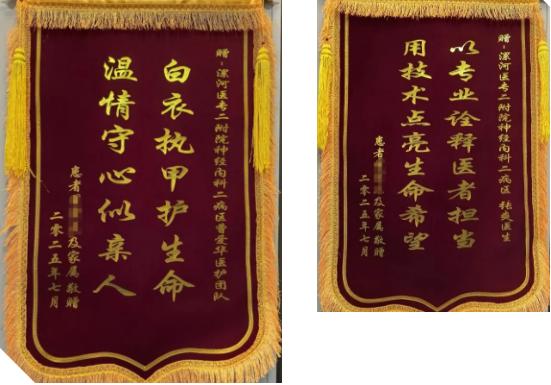 赠:漯河医专二附院神经内科二病区曹爱华医护团队
白衣执甲护生命
温情守心似亲人
患者
及家属敬赠
二零二五年七月
赠:漯河医专二附院神经内科二病区 张爽医生
以专业诠释医者担当
用技术点亮生命希望
患者
及家属敬赠
二零二五年七月